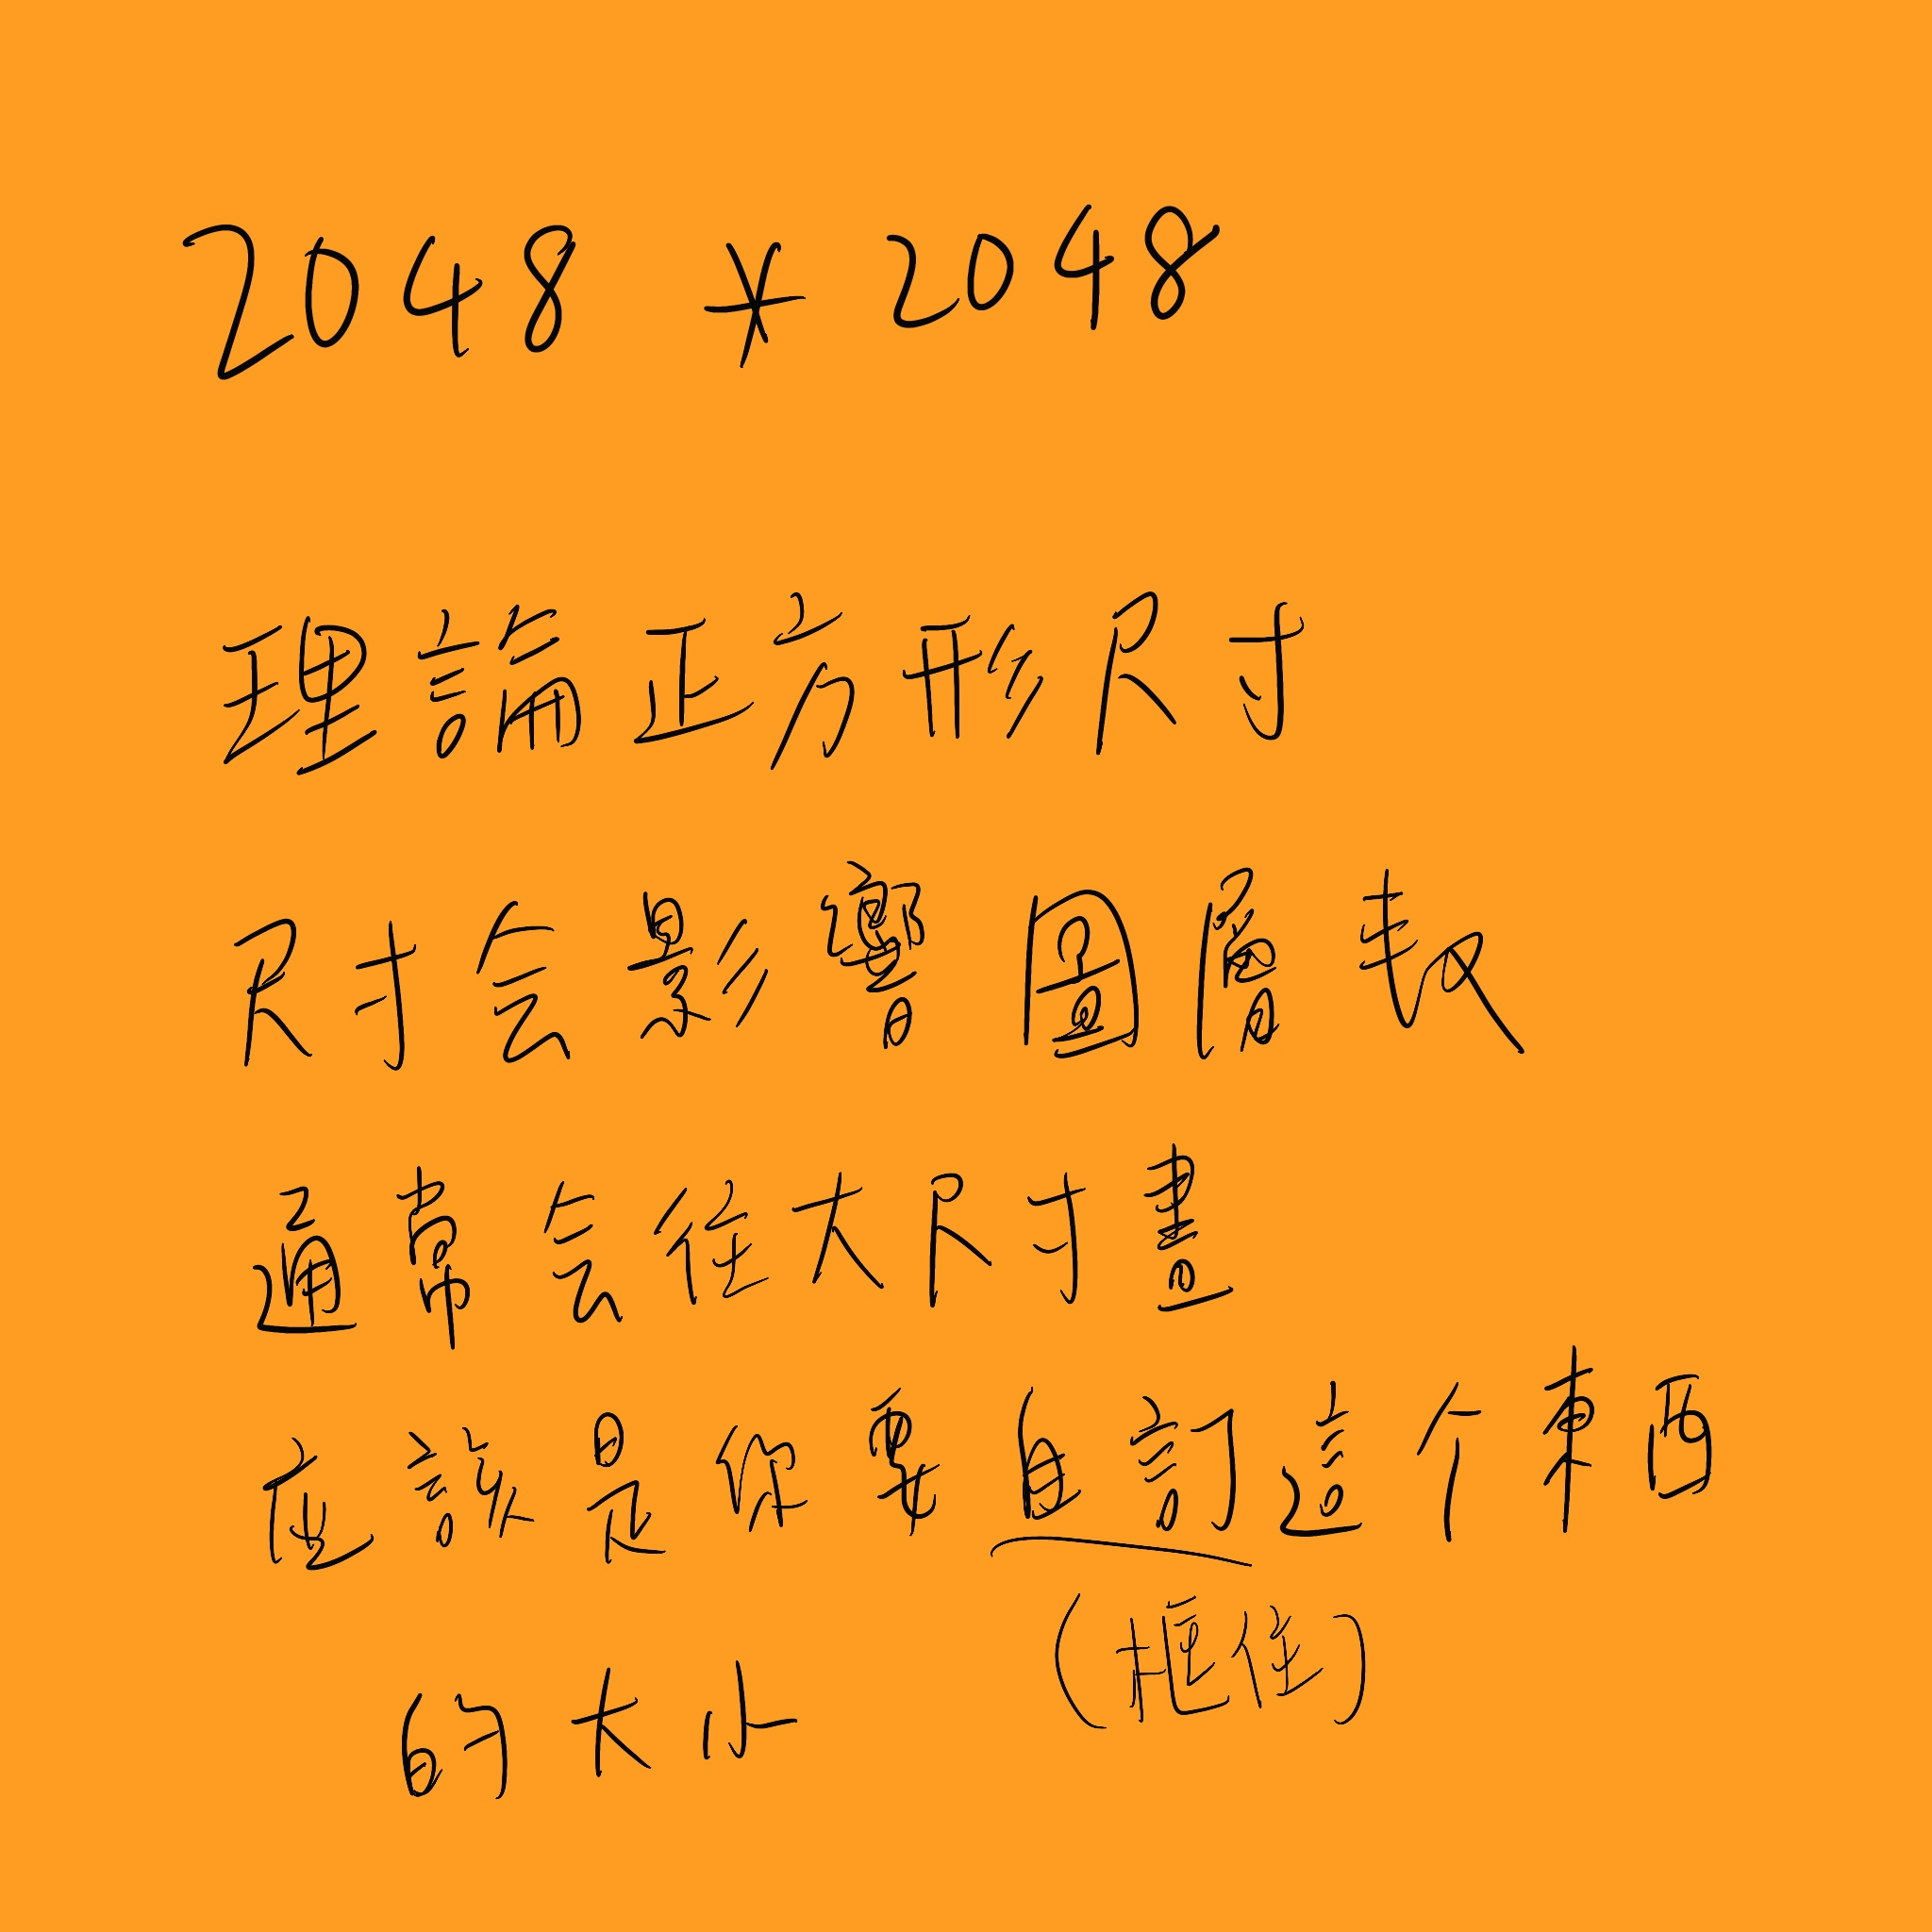 2048 * 2048
理論正方形尺寸
尺寸會影響圖層数
通常會往大尺寸畫
應該是你要自訂這个東西
(框住)
的大小